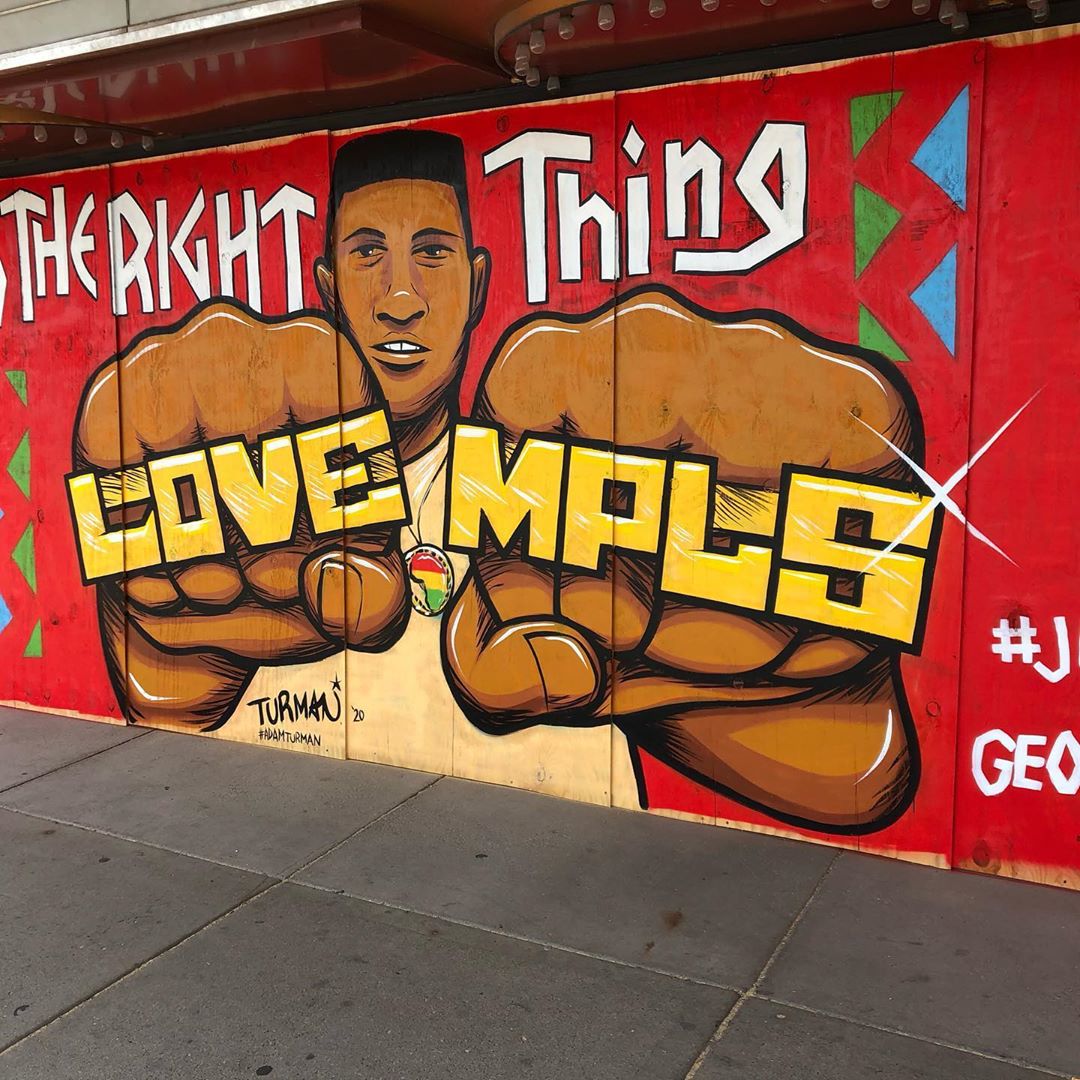 THE RIGHT Thing
LOVE MPLS
TURMAN '20
#ADAMTURMAN
#J
GEO